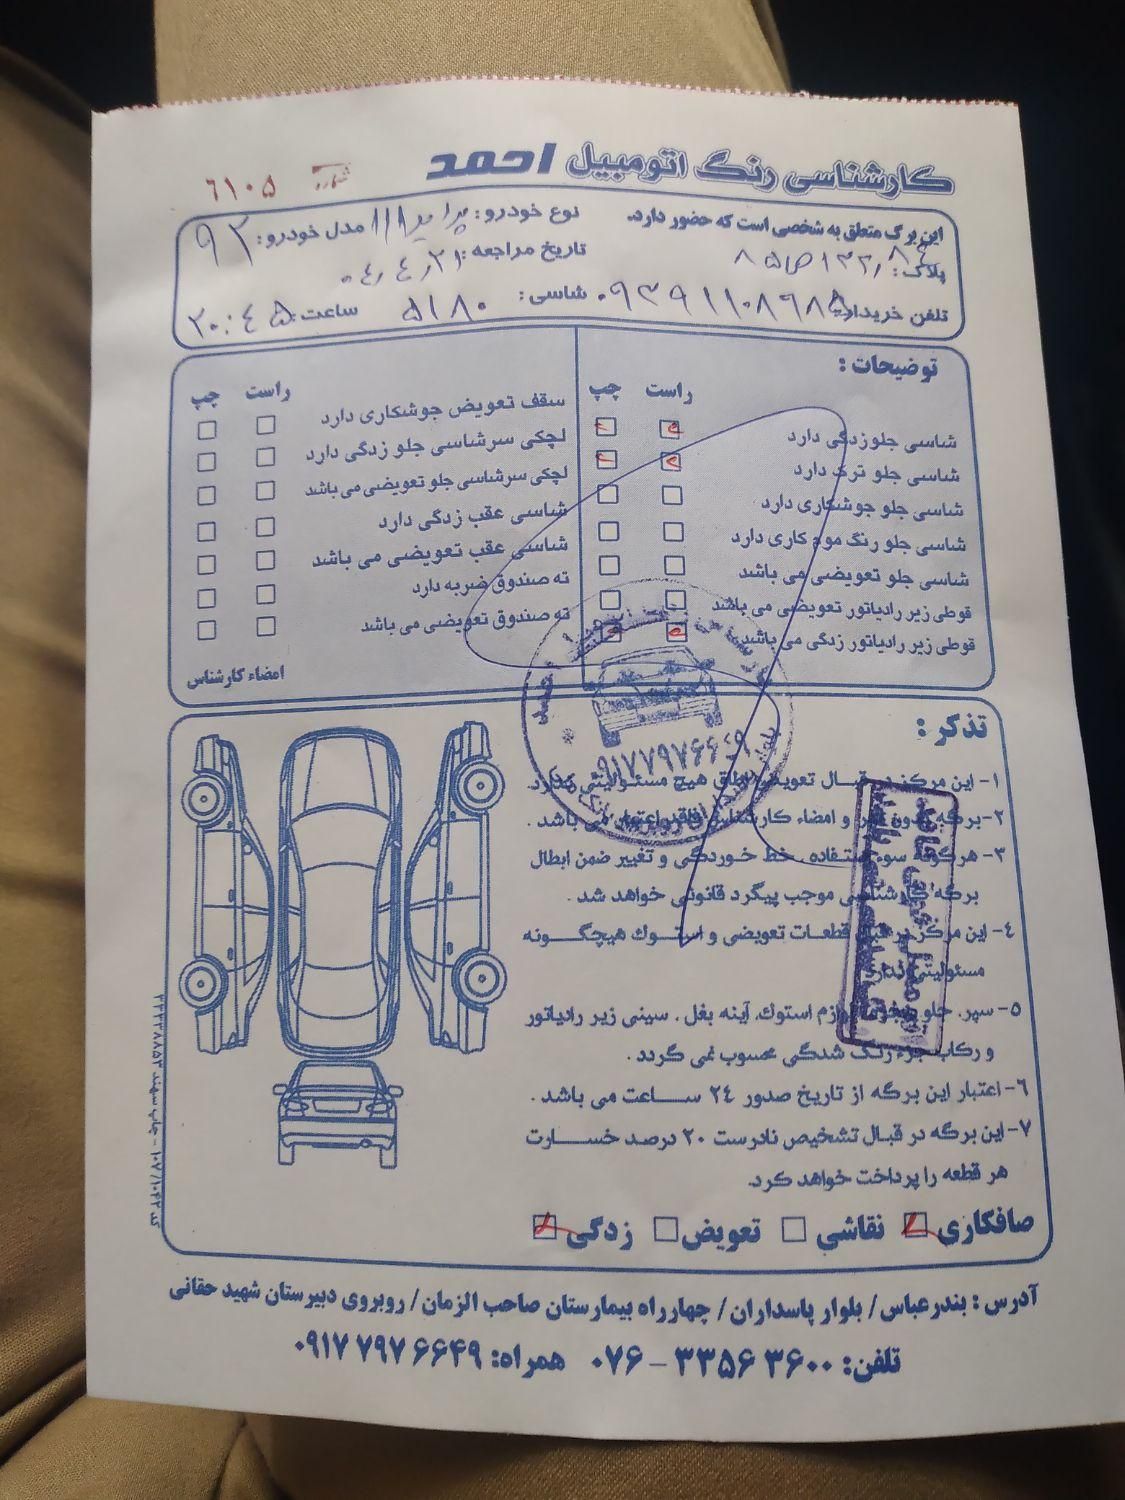 کارشناسی رنگ اتومبیل احمد
شماره ۶۱۰۵
این برگ متعلق به شخصی است که حضور دارد.
نوع خودرو: پراید ۱۱۱ مدل خودرو: ۹۲
پلاک:
تاریخ مراجعه: ۰۴٫۴٫۲۱
تلفن خریدار: ۰۹۳۹۱۱۰۸۶۸۵ شاسی: ۵۱۸۰ ساعت: ۲۰:۴۵
توضیحات:
راست چپ
شاسی جلوزدگی دارد
شاسی جلو ترک دارد
شاسی جلو جوشکاری دارد
شاسی جلو رنگ موم کاری دارد
شاسی جلو تعویضی می باشد
قوطی زیر رادیاتور تعویضی می باشد
قوطی زیر رادیاتور زدگی می باشد
راست چپ
سقف تعویض جوشکاری دارد
لچکی سرشاسی جلو زدگی دارد
لچکی سرشاسی جلو تعویضی می باشد
شاسی عقب زدگی دارد
شاسی عقب تعویضی می باشد
ته صندوق ضربه دارد
ته صندوق تعویضی می باشد
امضاء کارشناس
۰۹۱۷۷۹۷۶۶۴۹
تذکر:
۱- این مرکز در قبال تعویض اطاق هیچ مسئولیتی ندارد.
۲- برگه بدون مهر و امضاء کارشناس فاقد اعتبار می باشد.
۳- هرگونه سوء استفاده، خط خوردگی و تغییر ضمن ابطال
برگه کارشناسی موجب پیگرد قانونی خواهد شد.
۴- این مرکز در قبال قطعات تعویضی و استوک هیچگونه
مسئولیتی ندارد
۵- سپر، جلو پنجره، لوازم استوک، آینه بغل، سینی زیر رادیاتور
و رکاب جزء رنگ شدگی محسوب نمی گردد.
۶- اعتبار این برگه از تاریخ صدور ۲۴ ساعت می باشد.
۷- این برگه در قبال تشخیص نادرست ۲۰ درصد خسارت
هر قطعه را پرداخت خواهد کرد.
صافکاری نقاشی تعویض زدگی
آدرس: بندرعباس/ بلوار پاسداران/ چهارراه بیمارستان صاحب الزمان/ روبروی دبیرستان شهید حقانی
تلفن: ۳۳۵۶۳۶۰۰ - ۰۷۶ همراه: ۰۹۱۷۷۹۷۶۶۴۹